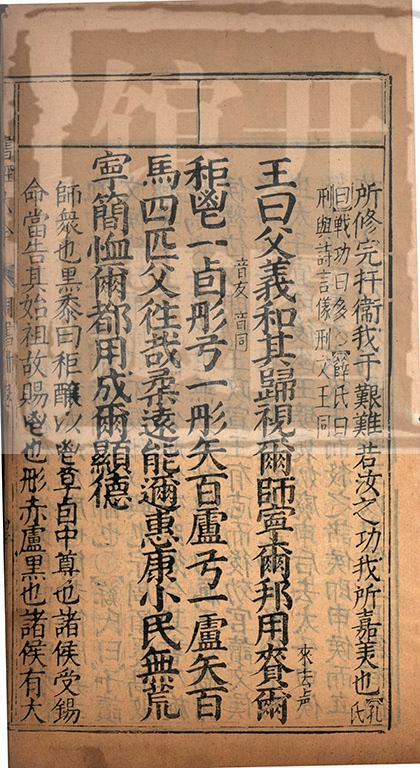 所修完扞衞我于艱難若汝之功我所嘉美也孔氏
曰戰功曰多○薛氏曰
刑與詩言儀刑文王同
王曰父義和其歸視爾師寧爾邦用賚爾
來去声
秬鬯一卣彤弓一彤矢百盧弓一盧矢百
音友 音同
馬四匹父往哉柔遠能邇惠康小民無荒
寧簡恤爾都用成爾顯德
師衆也黑黍曰秬釀以鬯草卣中尊也諸侯受錫
命當告其始祖故賜鬯也彤赤盧黑也諸侯有大